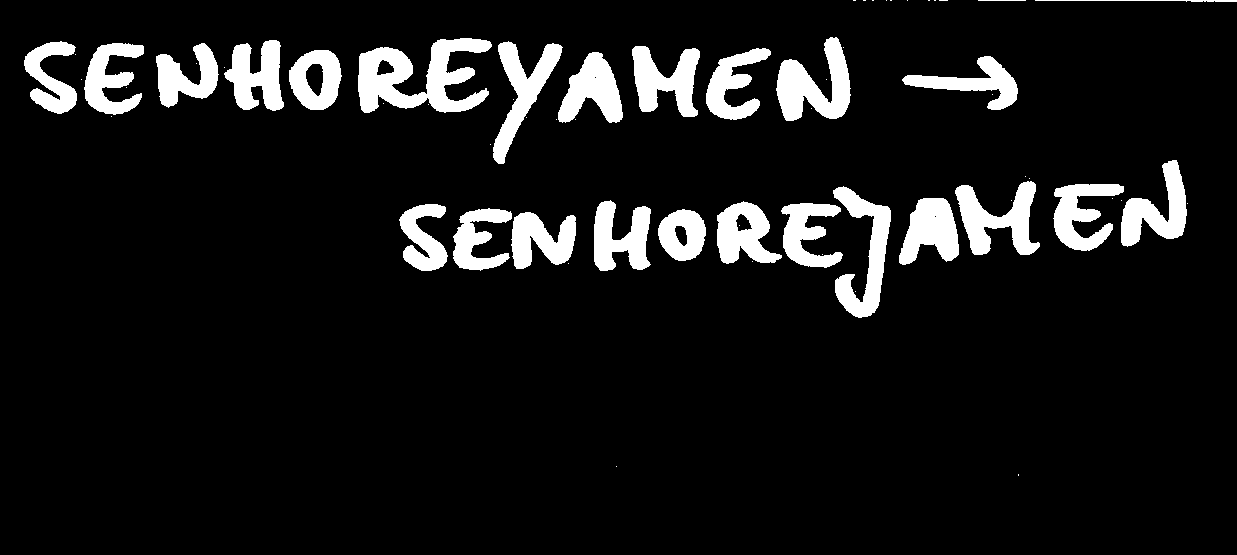 SENHOREYAMEN →
SENHOREJAMEN